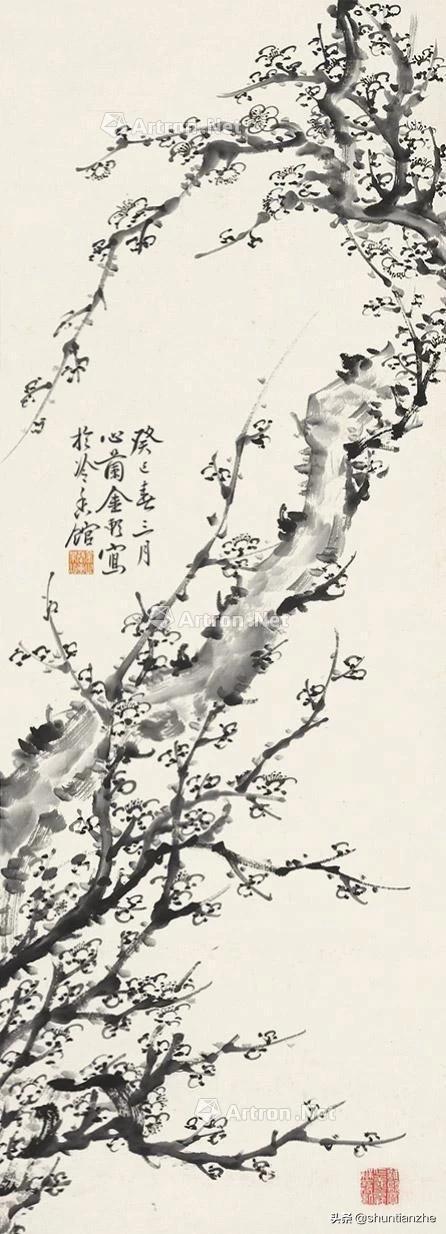 Artron.Net
癸巳春三月
心蘭金彭寫
於冷香館
Artron.Net
Artron.Net
头条 @shuntianzhe